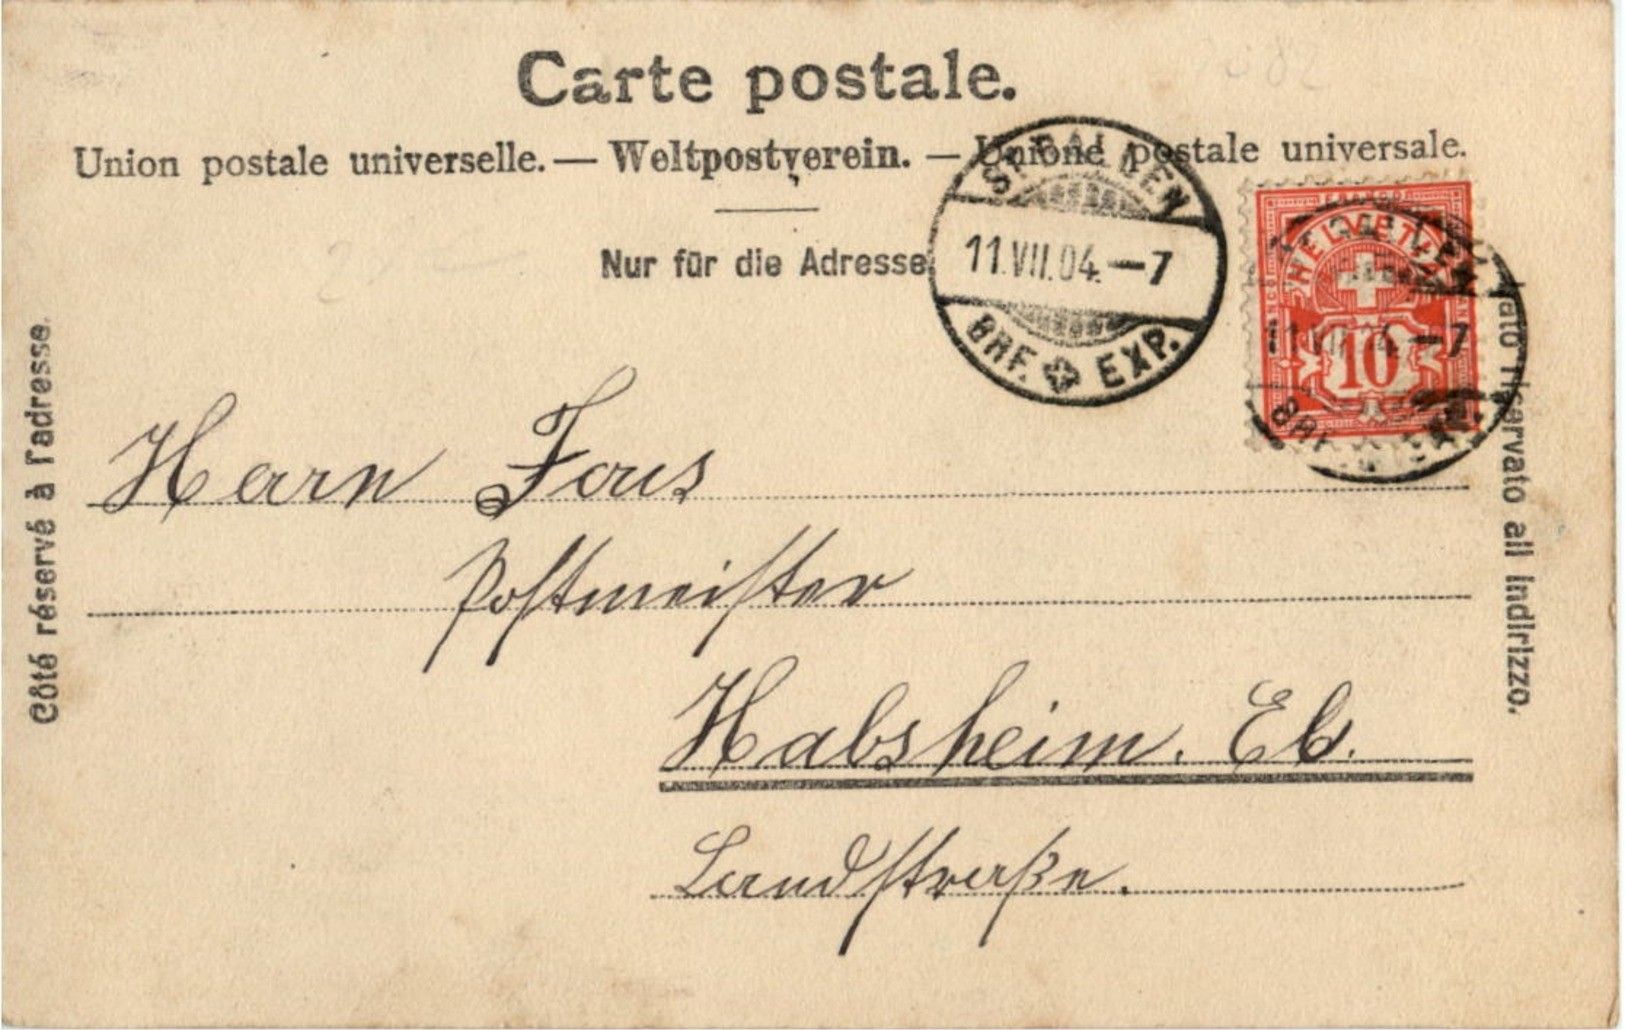 Carte postale.
Union postale universelle. — Weltpostverein. — Unione postale universale.
Nur für die Adresse
ST. GALLEN
11.VII.04.—7
BRF. EXP.
HELVETIA
10
11 VII 04 —7
Côté réservé à l'adresse.
Lato riservato all indirizzo.
Herrn Faus
Postmeister
Habsheim. Els.
Landstraße.